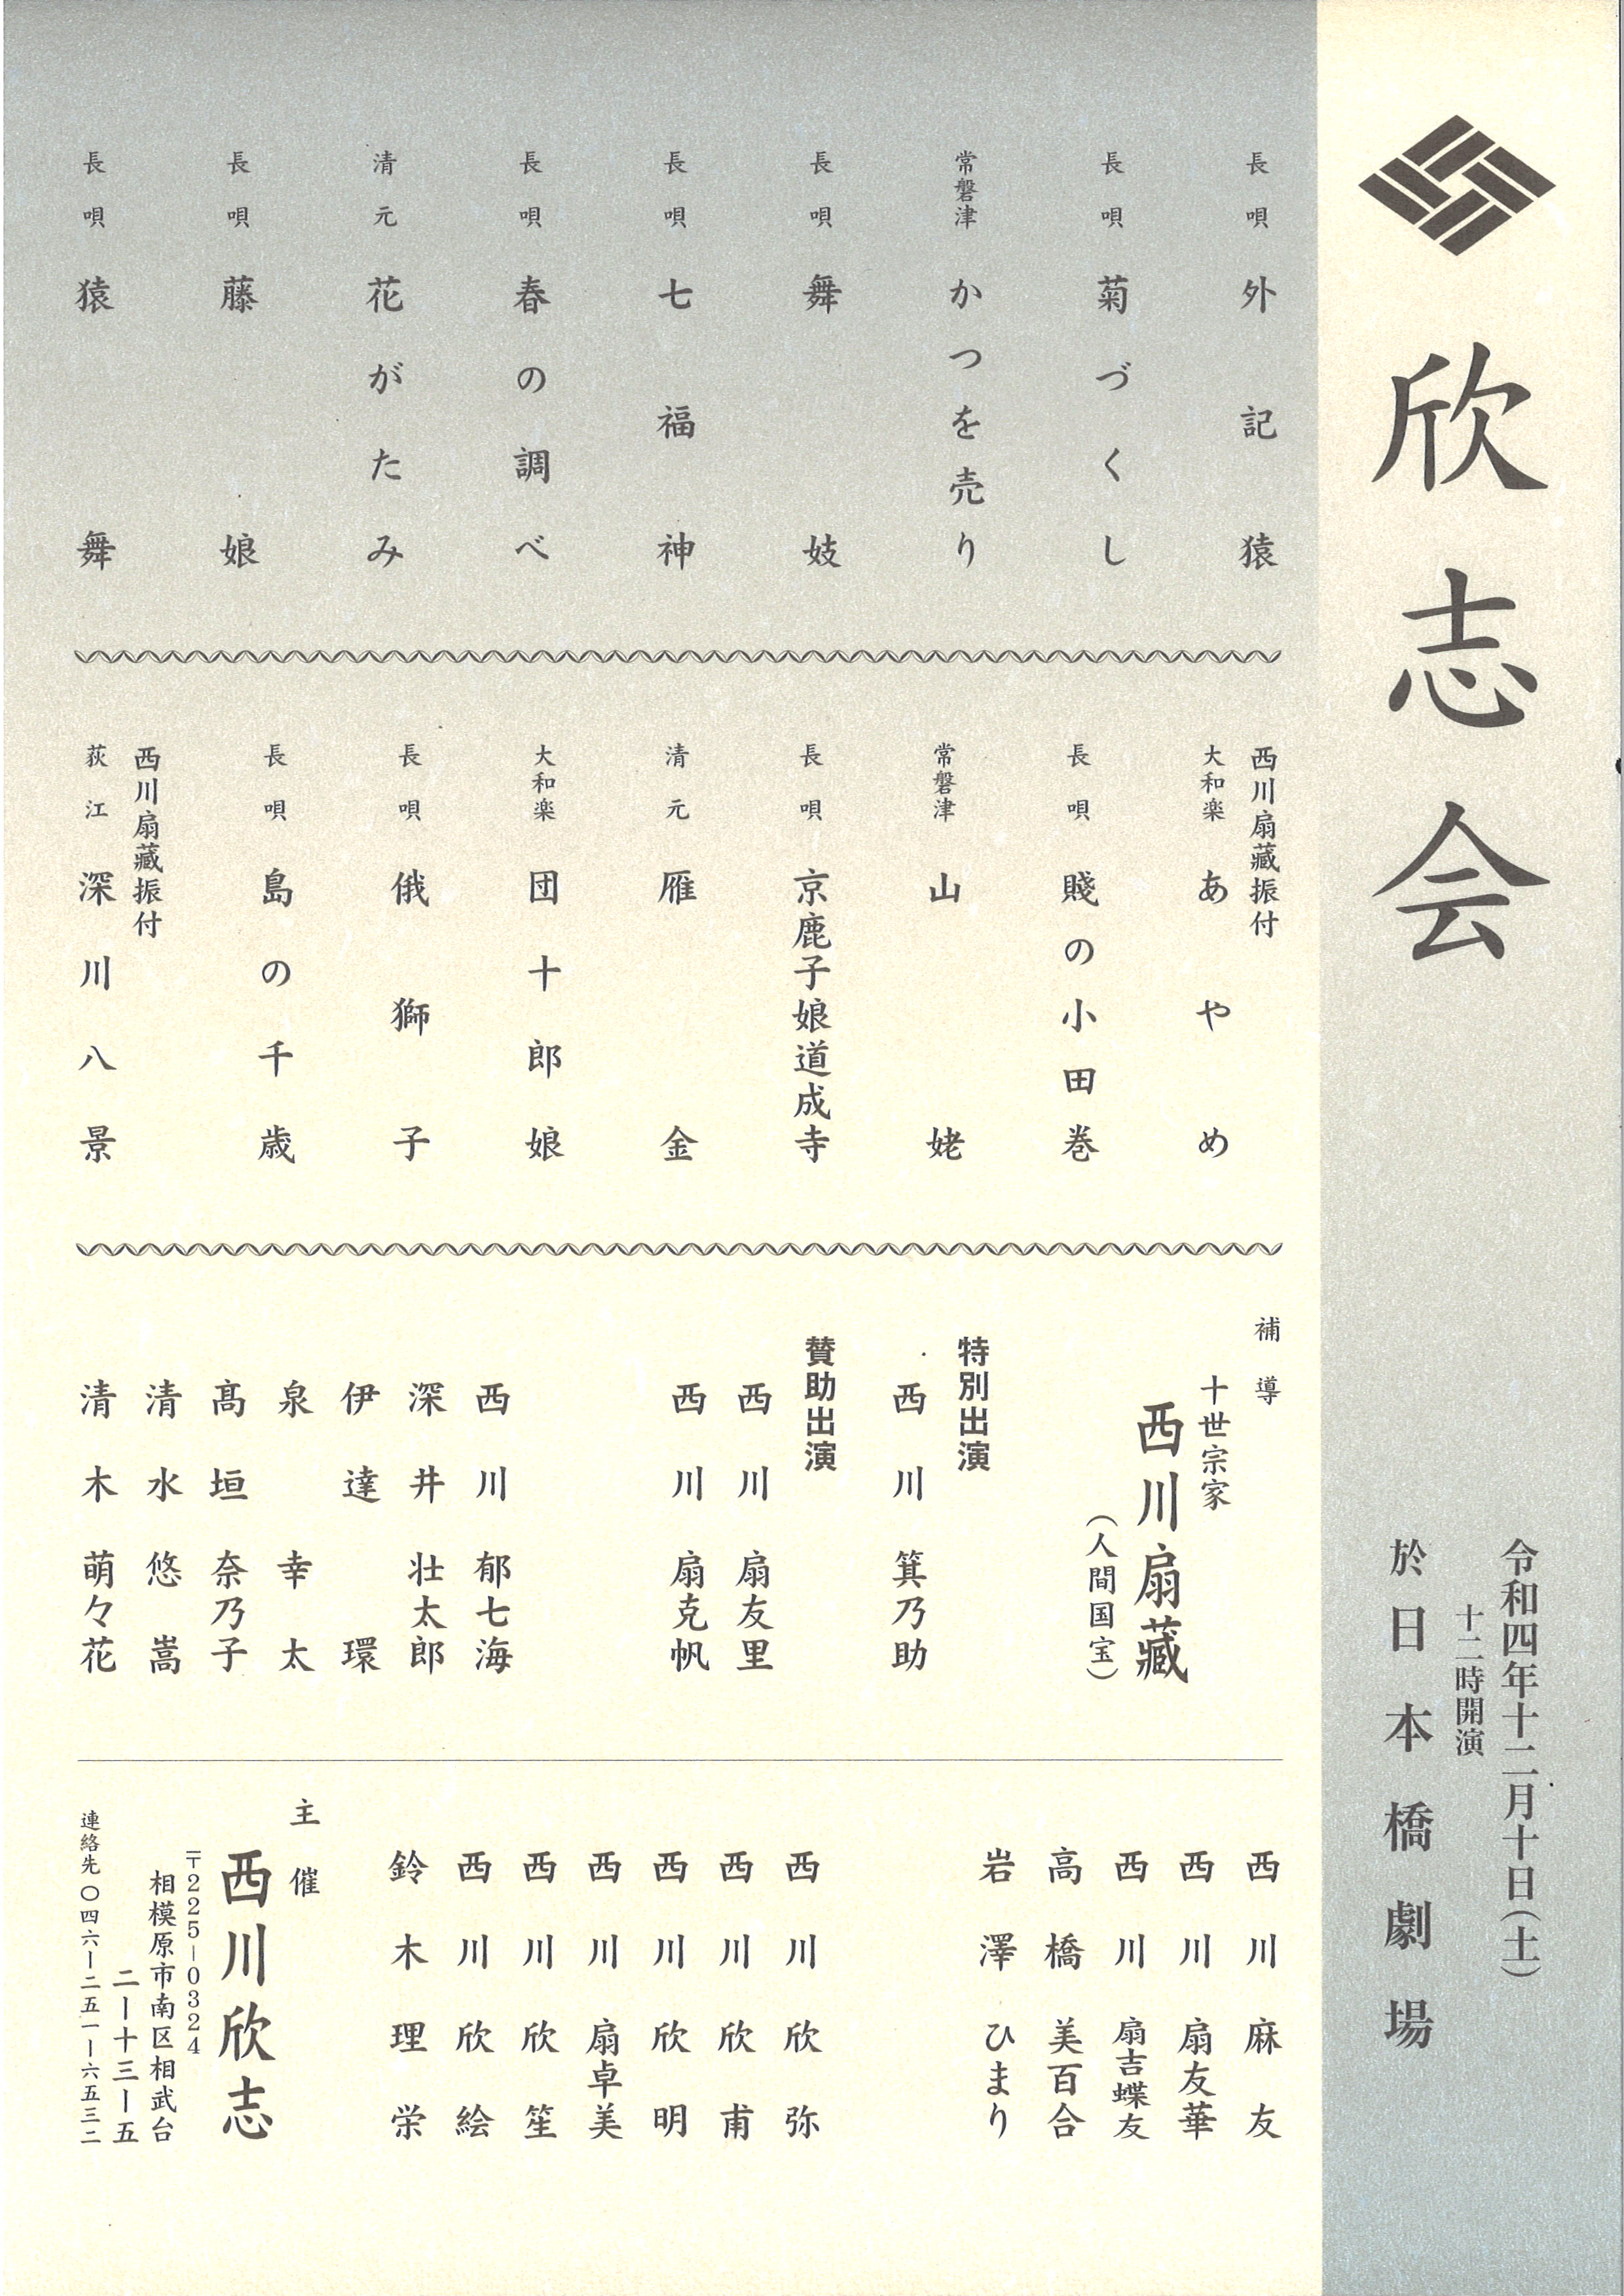 欣志会
令和四年十二月十日(土)
十二時開演
於日本橋劇場
長唄 外記猿
長唄 菊づくし
常磐津 かつを売り
長唄 舞妓
長唄 七福神
長唄 春の調べ
清元 花がたみ
長唄 藤娘
長唄 猿舞
西川扇藏振付
大和楽 あやめ
長唄 賤の小田巻
常磐津 山姥
長唄 京鹿子娘道成寺
清元 雁金
大和楽 団十郎娘
長唄 俄獅子
長唄 島の千歳
西川扇藏振付
荻江 深川八景
補導
十世宗家
西川扇藏
(人間国宝)
特別出演
西川箕乃助
賛助出演
西川扇友里
西川扇克帆
西川郁七海
深井壮太郎
伊達環
泉幸太
髙垣奈乃子
清水悠嵩
清木萌々花
西川麻友
西川扇友華
西川扇吉蝶友
高橋美百合
岩澤ひまり
西川欣弥
西川欣甫
西川欣明
西川扇卓美
西川欣笙
西川欣絵
鈴木理栄
主催
西川欣志
〒225-0324
相模原市南区相武台
二ー十三ー五
連絡先〇四六ー二五一ー六五三二